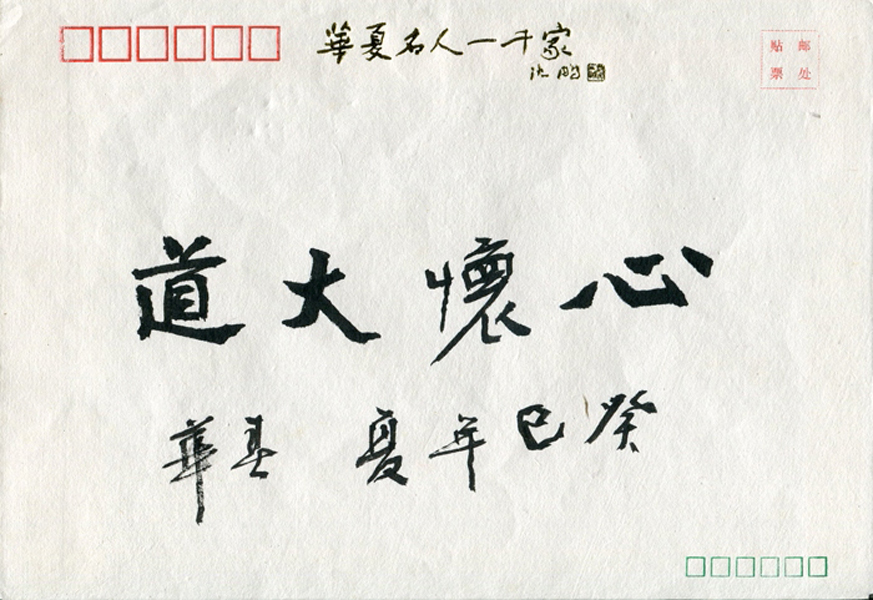 華夏名人一千家
沈鹏
贴邮
票处
心懷大道
癸巳年夏 華